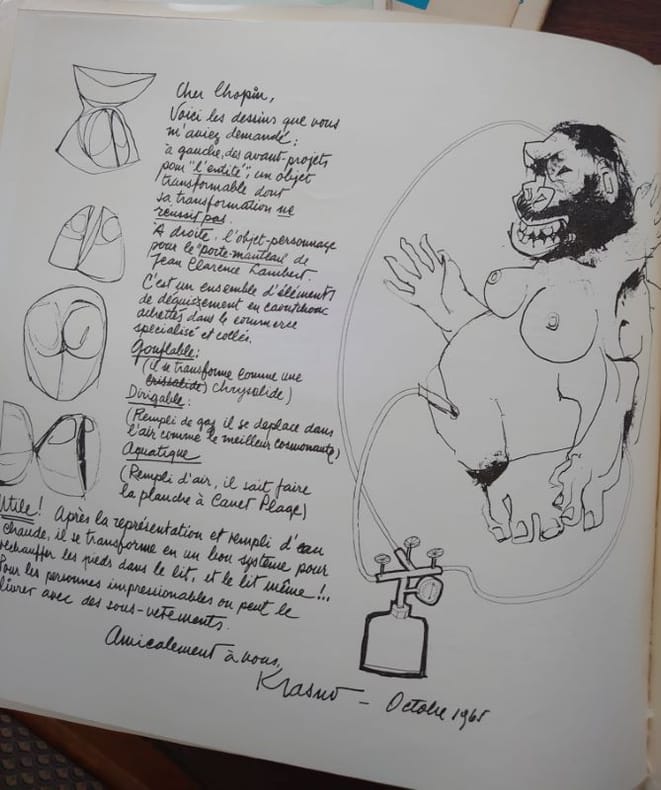 Cher Chopin,
Voici les dessins que vous
m'aviez demandé:
à gauche, des avant-projets
pour "l'entité", un objet
transformable dont
sa transformation ne
réussit pas.
A droite, l'objet-personnage
pour le "porte-manteau" de
Jean Clarence Lambert.
C'est un ensemble d'éléments
de déguisement en caoutchouc
achetés dans le commerce
spécialisé et collés.
Gonflable:
(il se transforme comme une
crissalide) chrysalide)
Dirigable:
(Rempli de gaz il se deplace dans
l'air comme le meilleur cosmonaute)
Aquatique
(Rempli d'air, il sait faire
la planche à Canet Plage)
Utile! Après la représentation et rempli d'eau
chaude, il se transforme en un bon système pour
réchauffer les pieds dans le lit, et le lit même!..
Pour les personnes impressionables on peut le
livrer avec des sous-vetements.
Amicalement à vous,
Krasno – Octobre 1965